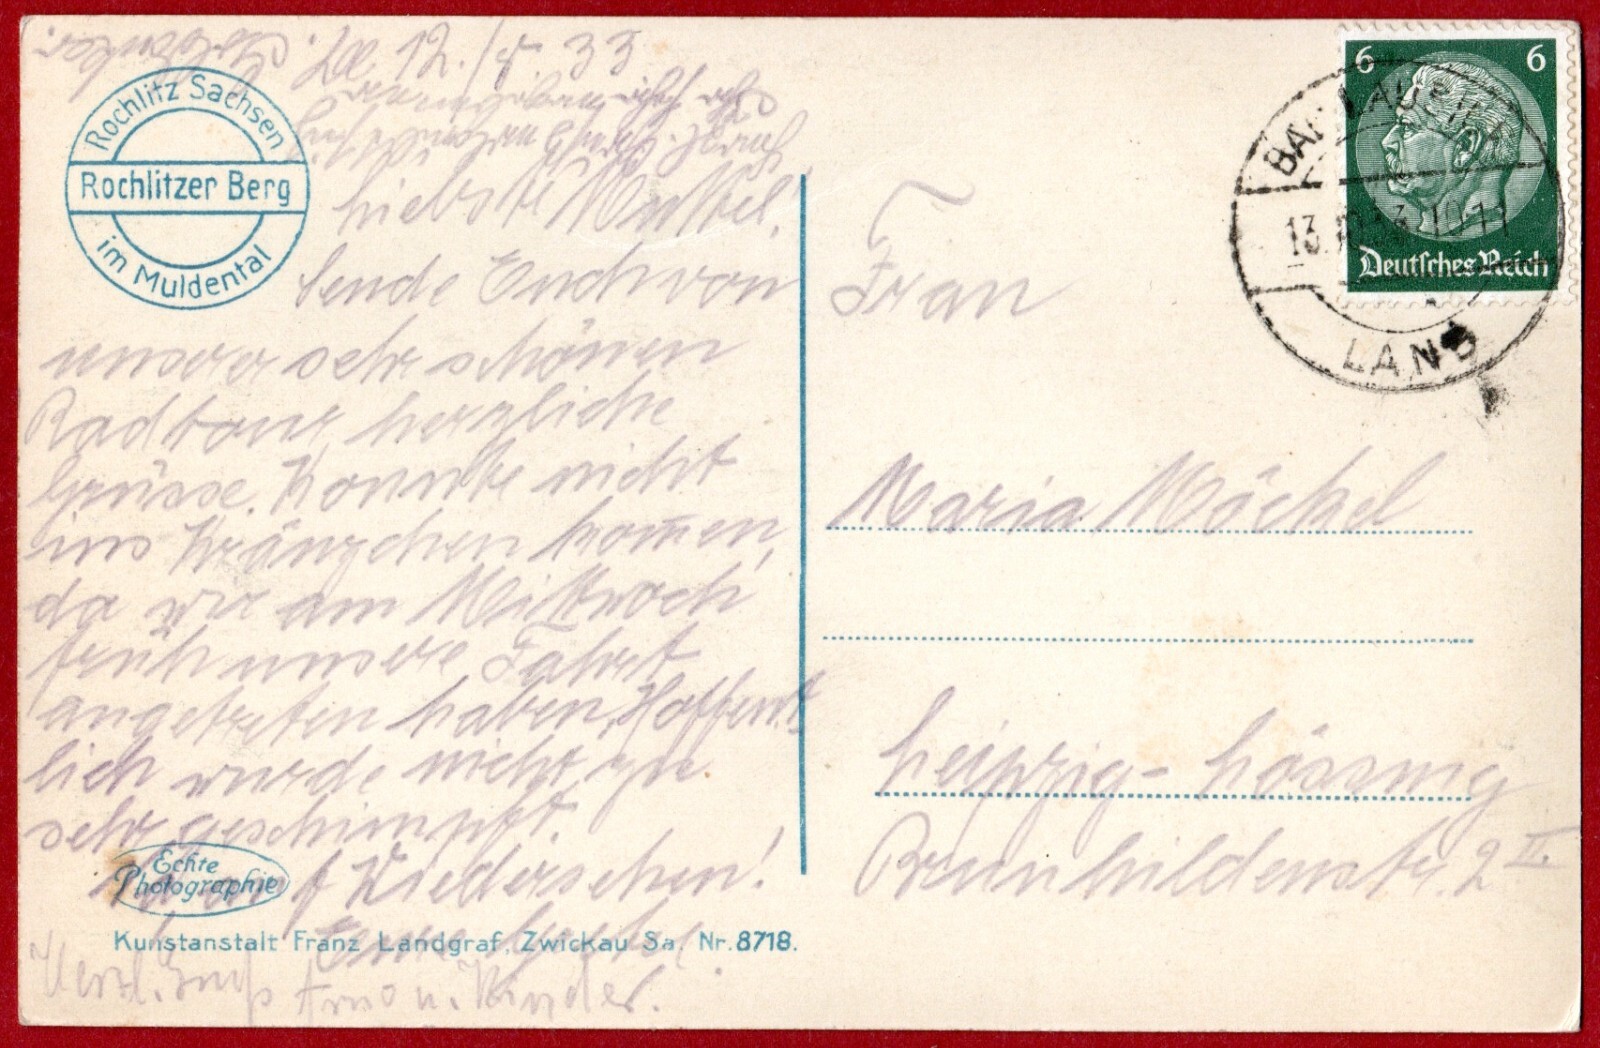 Rochlitz Sachsen
Rochlitzer Berg
im Muldental
12./ 33
Liebste Muttel!
Sende Euch von
unserer sehr schönen
Radtour herzliche
Grüsse. Konnte nicht
ins Kränzchen kom̄en,
da wir am Mittwoch
früh unsere Fahrt
angetreten haben. Hoffent
lich wurde nicht zu
sehr geschimpft.
Auf Wiedersehen!
Eure
Herzl. Gruß Arno u. Kinder.
Echte
Photographie
Kunstanstalt Franz Landgraf, Zwickau Sa. Nr. 8718.
6 6
Deutsches Reich
BAD LAUSICK
13.10.33.10-11
LAND
Frau
Maria Möckel
Leipzig-Lössnig
Brunhildenstr. 2 II.